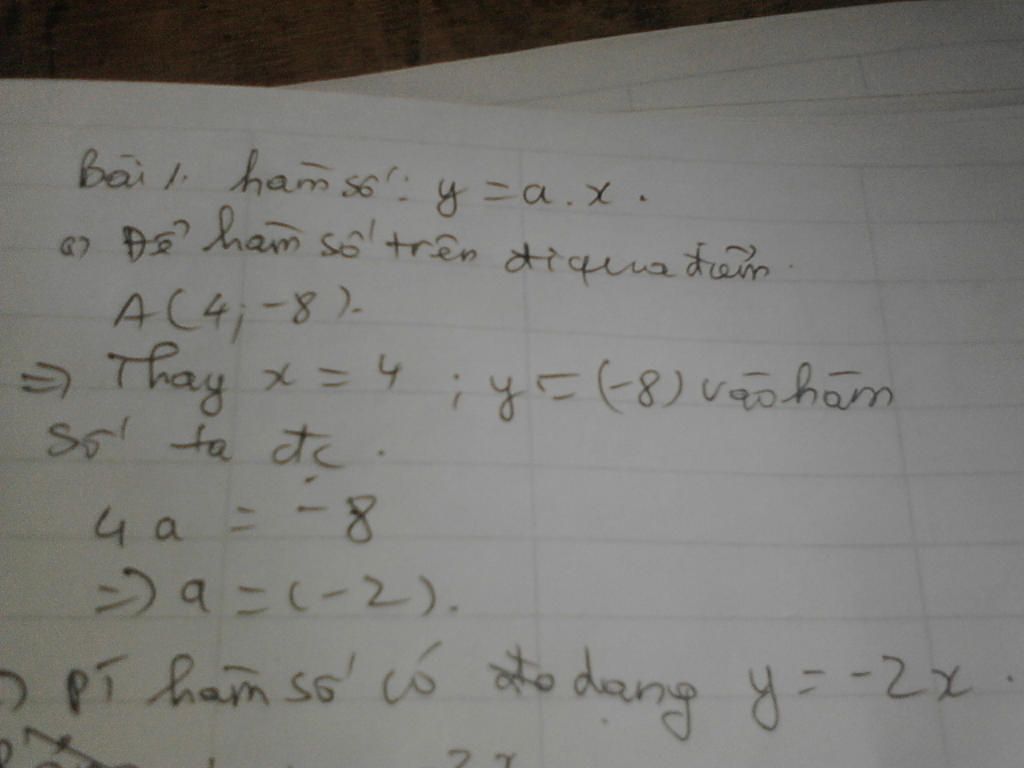 Bài 1. hàm số: y = a.x.
a) Để hàm số trên đi qua điểm
A(4; -8).
=> Thay x = 4 ; y = (-8) vào hàm
số ta đc.
4a = -8
=> a = (-2).
) PT hàm số có dạng y = -2x.
2x